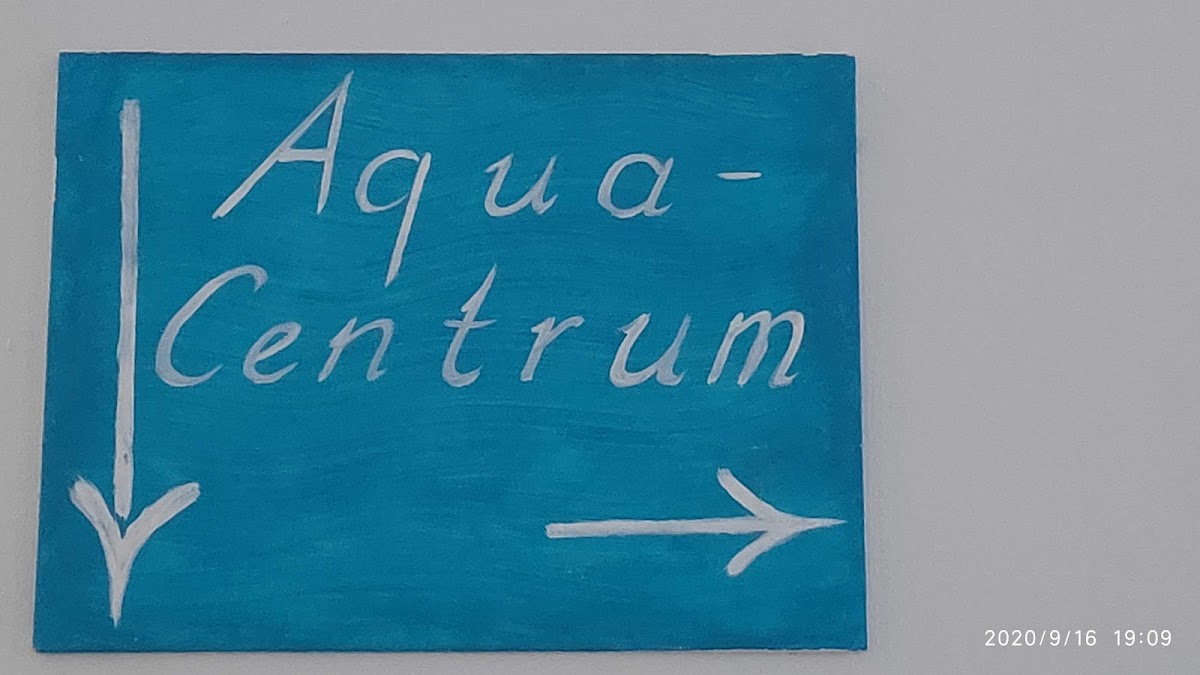 Aqua-
Centrum
2020/9/16 19:09